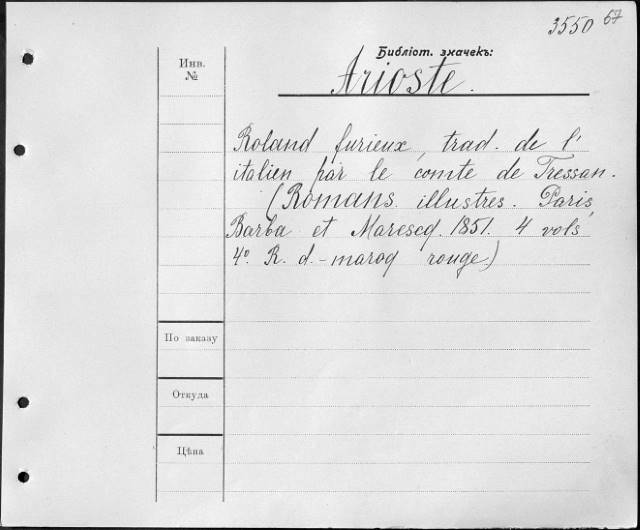 3550 67
Библіот. значекъ:
Arioste.
Инв.
№
Roland furieux, trad. de l'
italien par le comte de Tressan.
(Romans illustres. Paris,
Barba et Marescq. 1851. 4 vols
4° R. d.-maroq rouge.)
По заказу
Откуда
Цѣна